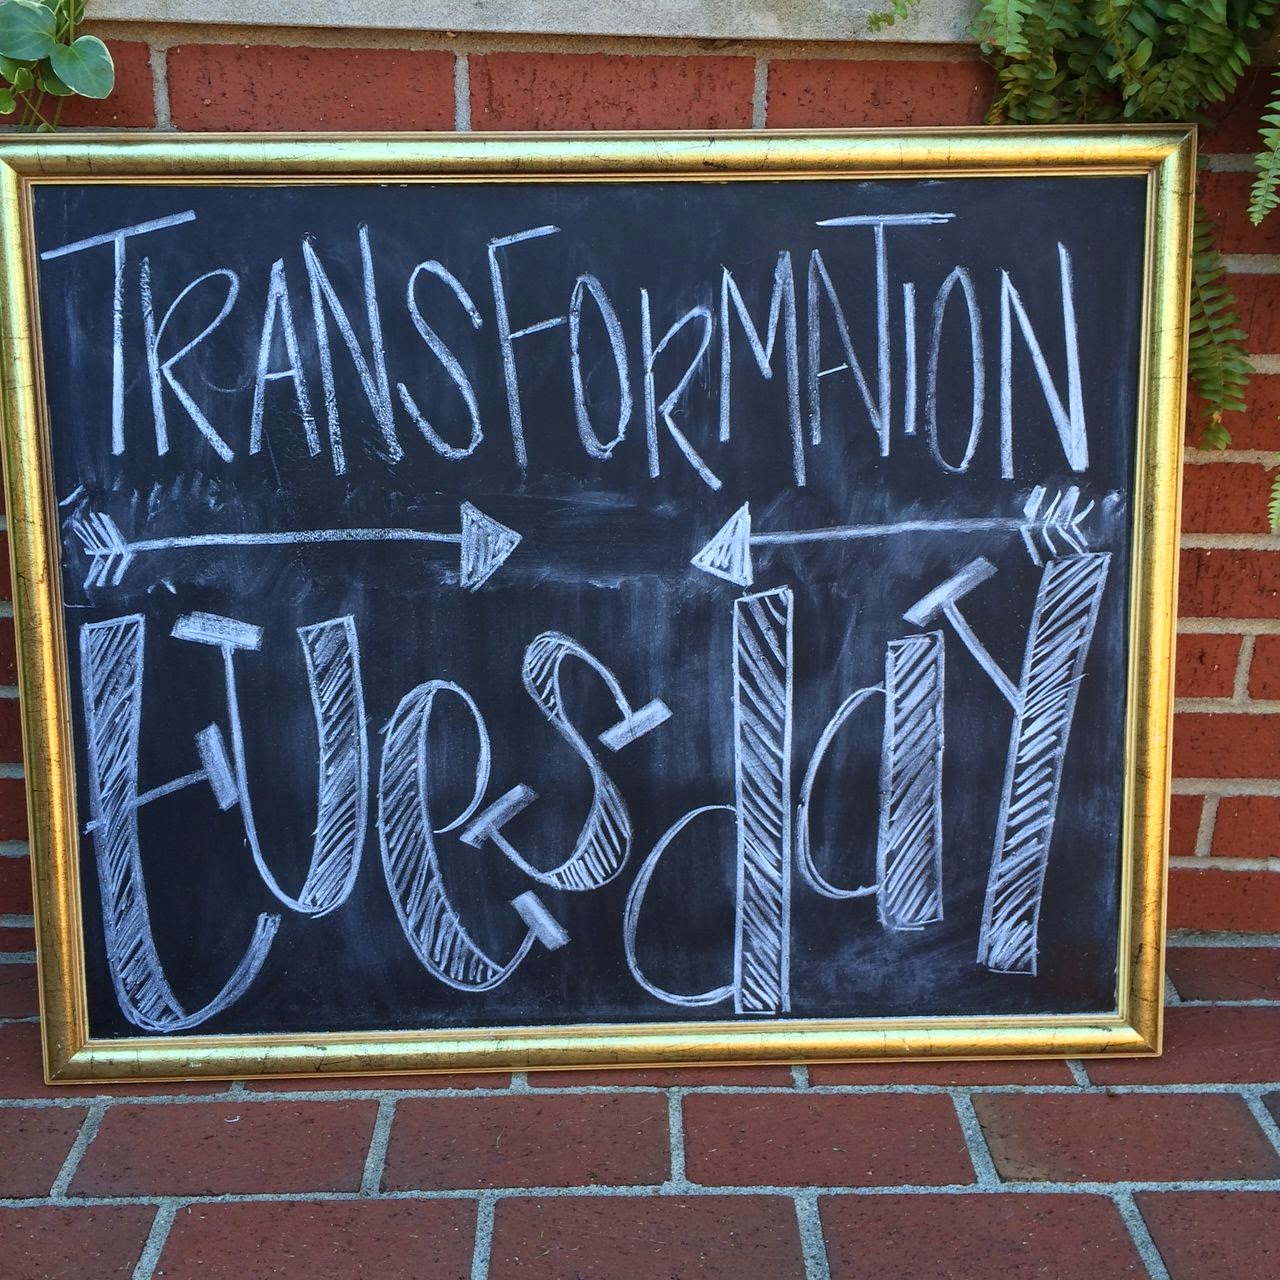 TRANSFORMATION
tuesdaY